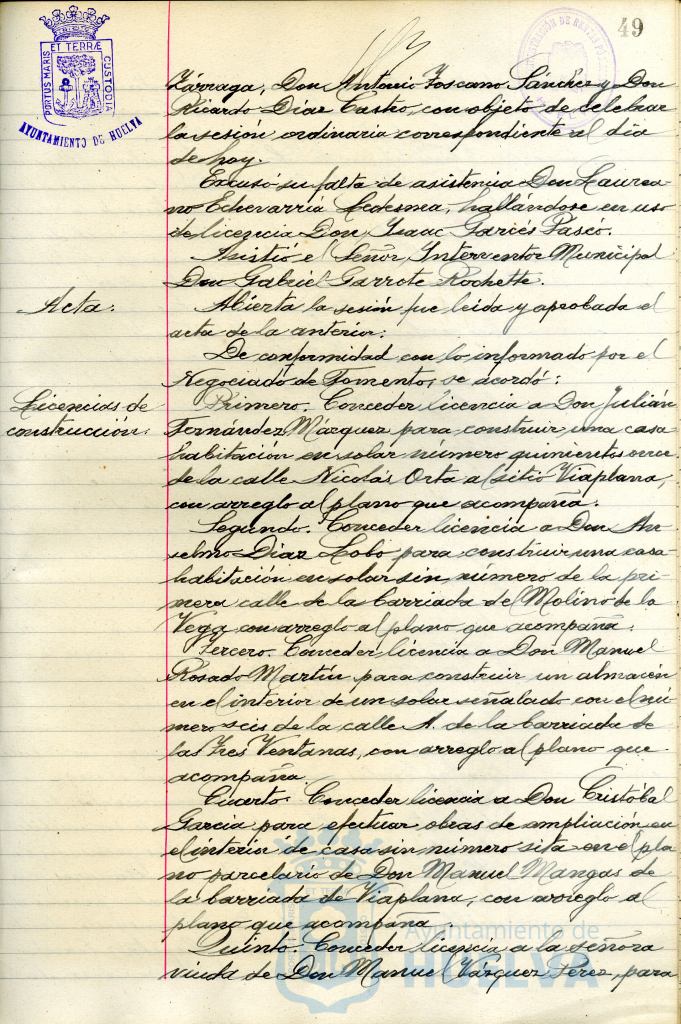 49
PORTUS MARIS ET TERRÆ CUSTODIA
AYUNTAMIENTO DE HUELVA
Zárraga, Don Antonio Toscano Sánchez y Don
Ricardo Díaz Castro, con objeto de celebrar
la sesión ordinaria correspondiente al día
de hoy.
Excusó su falta de asistencia Don Laurea-
no Echevarría Ledesma, hallándose en uso
de licencia Don Isaac Garcés Pascó.
Asistió el Señor Interventor Municipal
Don Gabriel Garrote Rochette.
Acta:
Abierta la sesión fue leída y aprobada el
acta de la anterior:
De conformidad con lo informado por el
Negociado de Fomento, se acordó:
Licencias de
construcción:
Primero. Conceder licencia a Don Julián
Fernández Márquez para construir una casa
habitación en solar número quinientos once
de la calle Nicolás Orta al sitio Viaplana,
con arreglo al plano que acompaña.
Segundo. Conceder licencia a Don An-
selmo Díaz Lobo para construir una casa-
habitación en solar sin número de la pri-
mera calle de la barriada del Molino de la
Vega con arreglo al plano que acompaña.
Tercero. Conceder licencia a Don Manuel
Rosado Martín para construir un almacén
en el interior de un solar señalado con el nú-
mero seis de la calle A. de la barriada de
las Tres Ventanas, con arreglo al plano que
acompaña.
Cuarto. Conceder licencia a Don Cristóbal
García para efectuar obras de ampliación en
el interior de casa sin número sita en el pla-
no parcelario de Don Manuel Mangas de
la barriada de Viaplana, con arreglo al
plano que acompaña.
Quinto. Conceder licencia a la señora
viuda de Don Manuel Vázquez Pérez, para
Ayuntamiento de
HUELVA